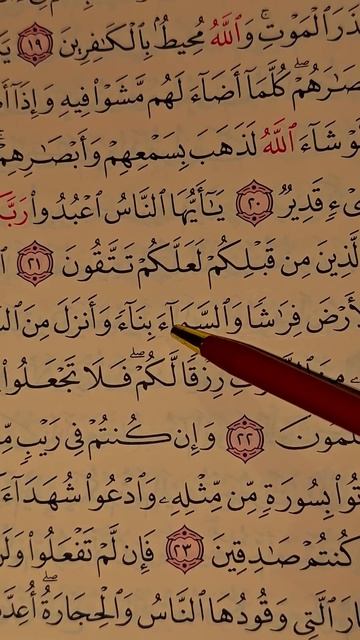 ذَرَ ٱلْمَوْتِ ۚ وَٱللَّهُ مُحِيطٌۢ بِٱلْكَٰفِرِينَ ١٩ يَ
صَٰرَهُمْ ۖ كُلَّمَآ أَضَآءَ لَهُم مَّشَوْا۟ فِيهِ وَإِذَآ أَ
وْ شَآءَ ٱللَّهُ لَذَهَبَ بِسَمْعِهِمْ وَأَبْصَٰرِهِمْ ۚ
ىْءٍ قَدِيرٌ ٢٠ يَٰٓأَيُّهَا ٱلنَّاسُ ٱعْبُدُوا۟ رَبَّ
ٱلَّذِينَ مِن قَبْلِكُمْ لَعَلَّكُمْ تَتَّقُونَ ٢١ ٱ
لْأَرْضَ فِرَٰشًا وَٱلسَّمَآءَ بِنَآءً وَأَنزَلَ مِنَ ٱلسَّ
رِزْقًا لَّكُمْ ۖ فَلَا تَجْعَلُوا۟
لَمُونَ ٢٢ وَإِن كُنتُمْ فِى رَيْبٍ مِّ
تُوا۟ بِسُورَةٍ مِّن مِّثْلِهِۦ وَٱدْعُوا۟ شُهَدَآءَ
كُنتُمْ صَٰدِقِينَ ٢٣ فَإِن لَّمْ تَفْعَلُوا۟ وَلَ
ارَ ٱلَّتِى وَقُودُهَا ٱلنَّاسُ وَٱلْحِجَارَةُ ۖ أُعِدَّ